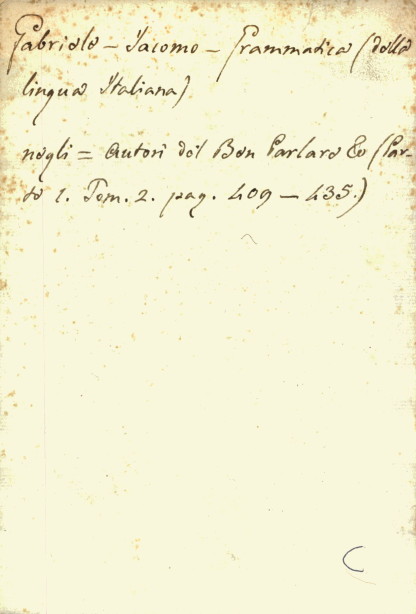 Gabriele – Iacomo – Grammatica (della
lingua Italiana)
negli = Autori del Ben Parlare &c (Par-
te 1. Tom. 2. pag. 409 – 435.)
C